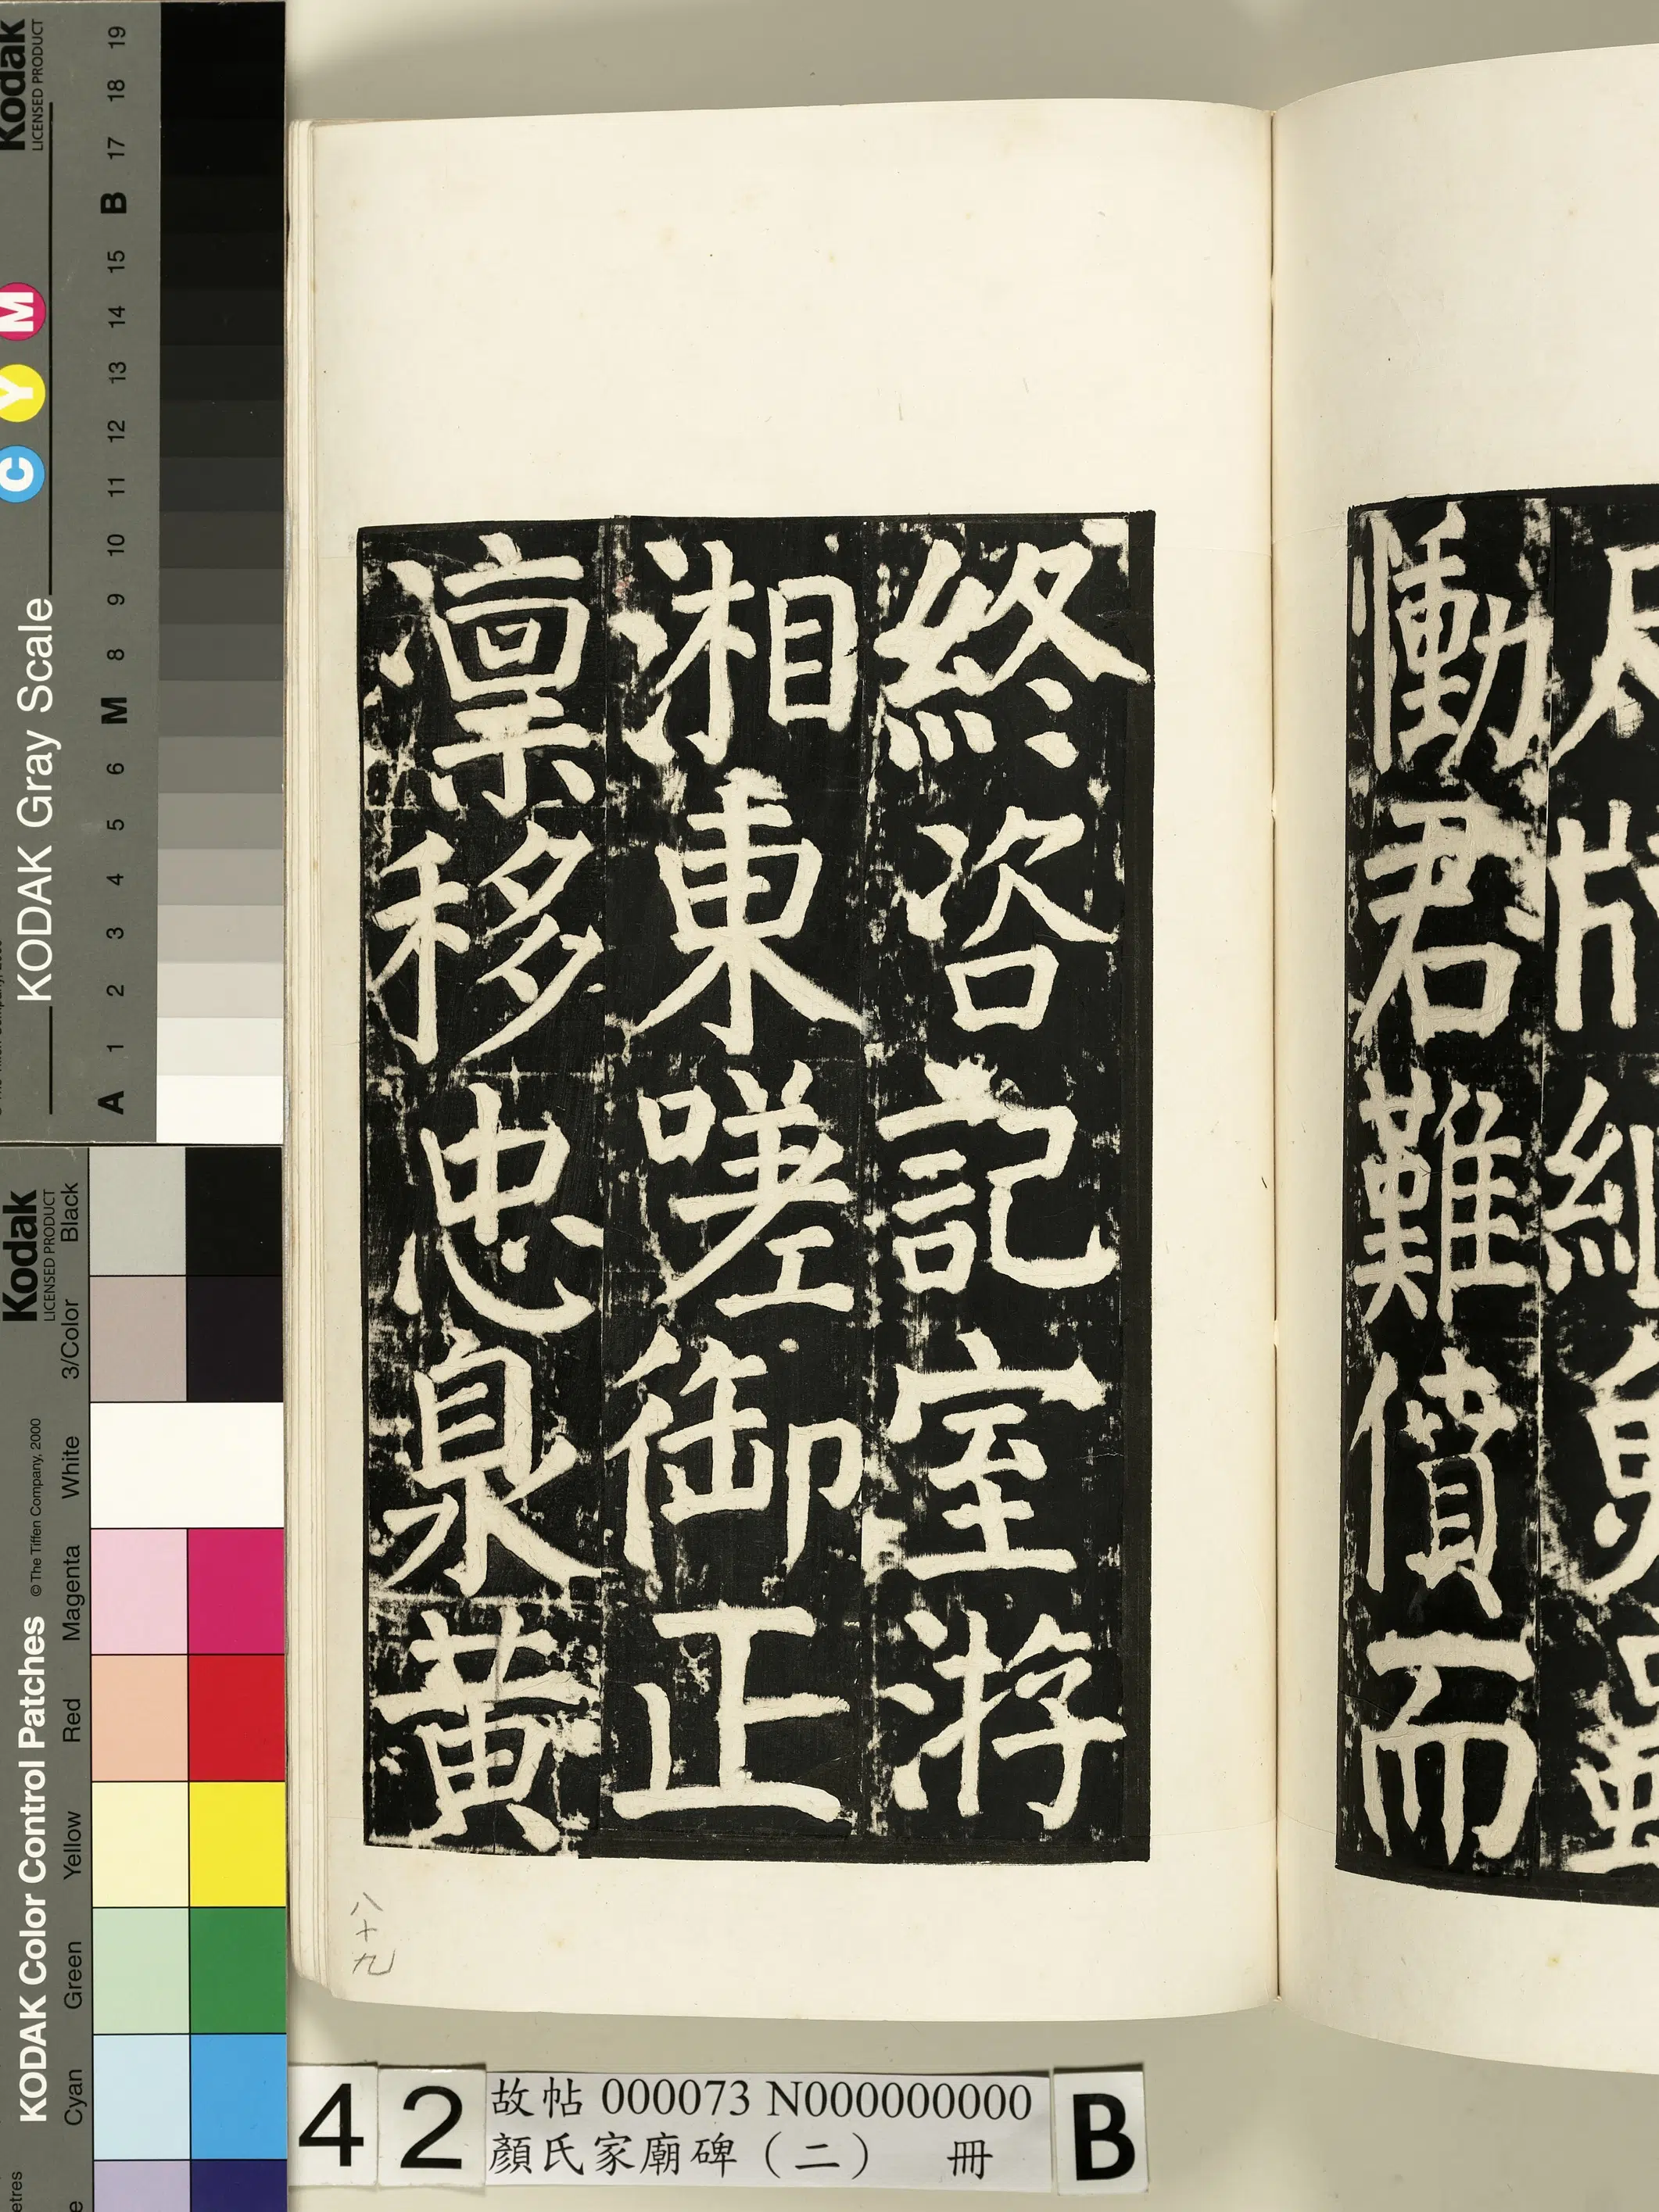 慟君難償而
終咨記室㳺
湘東嗟御正
凛移忠泉黃
八十九
42
故帖 000073 N000000000
顏氏家廟碑（二） 冊
B
Kodak
LICENSED PRODUCT
KODAK Gray Scale
C Y M
A 1 2 3 4 5 6 M 8 9 10 11 12 13 14 15 B 17 18 19
Kodak
LICENSED PRODUCT
KODAK Color Control Patches
© The Tiffen Company, 2000
Cyan Green Yellow Red Magenta White 3/Color Black